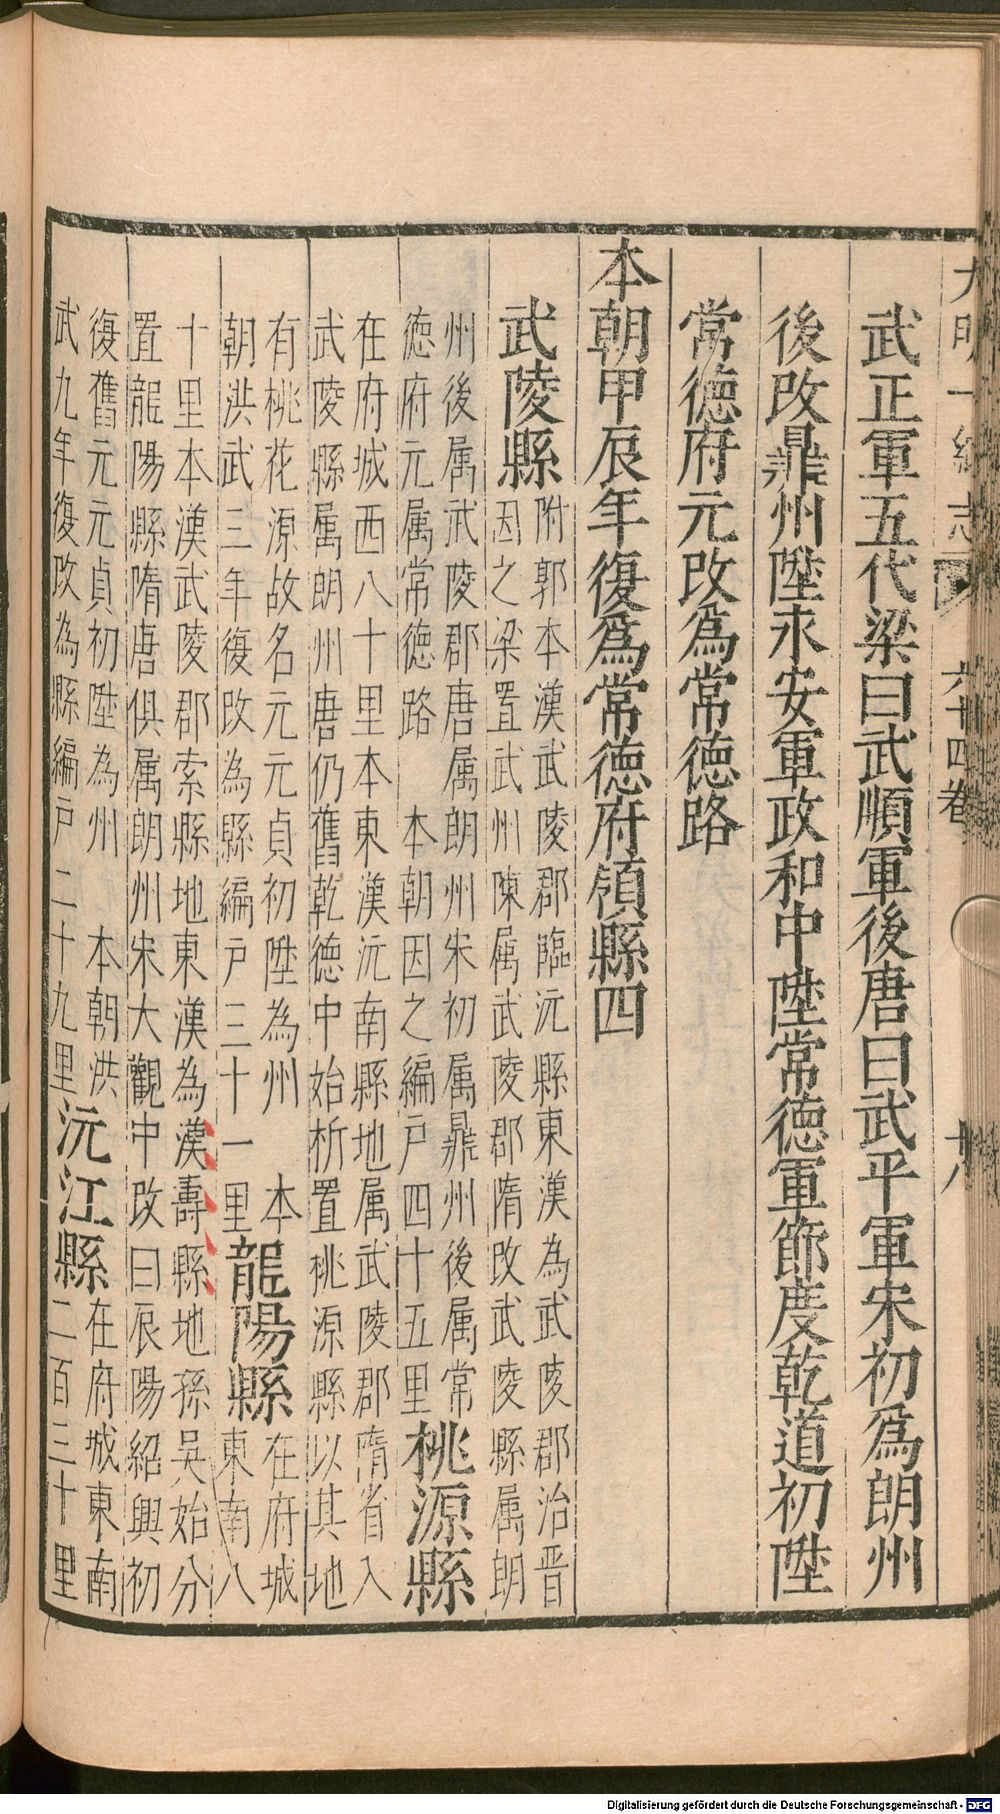 大明一統志 六十四卷 十八
武正軍五代梁曰武順軍後唐曰武平軍宋初爲朗州
後改鼎州陞永安軍政和中陞常德軍節度乾道初陞
常德府元改爲常德路
本朝甲辰年復爲常德府領縣四
武陵縣
附郭本漢武陵郡臨沅縣東漢為武陵郡治晋
因之梁置武州陳属武陵郡隋改武陵縣属朗
州後属武陵郡唐属朗州宋初属鼎州後属常
德府元属常德路 本朝因之編戸四十五里
桃源縣
在府城西八十里本東漢沅南縣地属武陵郡隋省入
武陵縣属朗州唐仍舊乾德中始析置桃源縣以其地
有桃花源故名元元貞初陞為州 本
朝洪武三年復改為縣編戸三十一里
龍陽縣
在府城
東南八
十里本漢武陵郡索縣地東漢為漢壽縣地孫吳始分
置龍陽縣隋唐俱属朗州宋大觀中改曰辰陽紹興初
復舊元元貞初陞為州 本朝洪
武九年復改為縣編戸二十九里
沅江縣
在府城東南
二百三十里
Digitalisierung gefördert durch die Deutsche Forschungsgemeinschaft - DFG